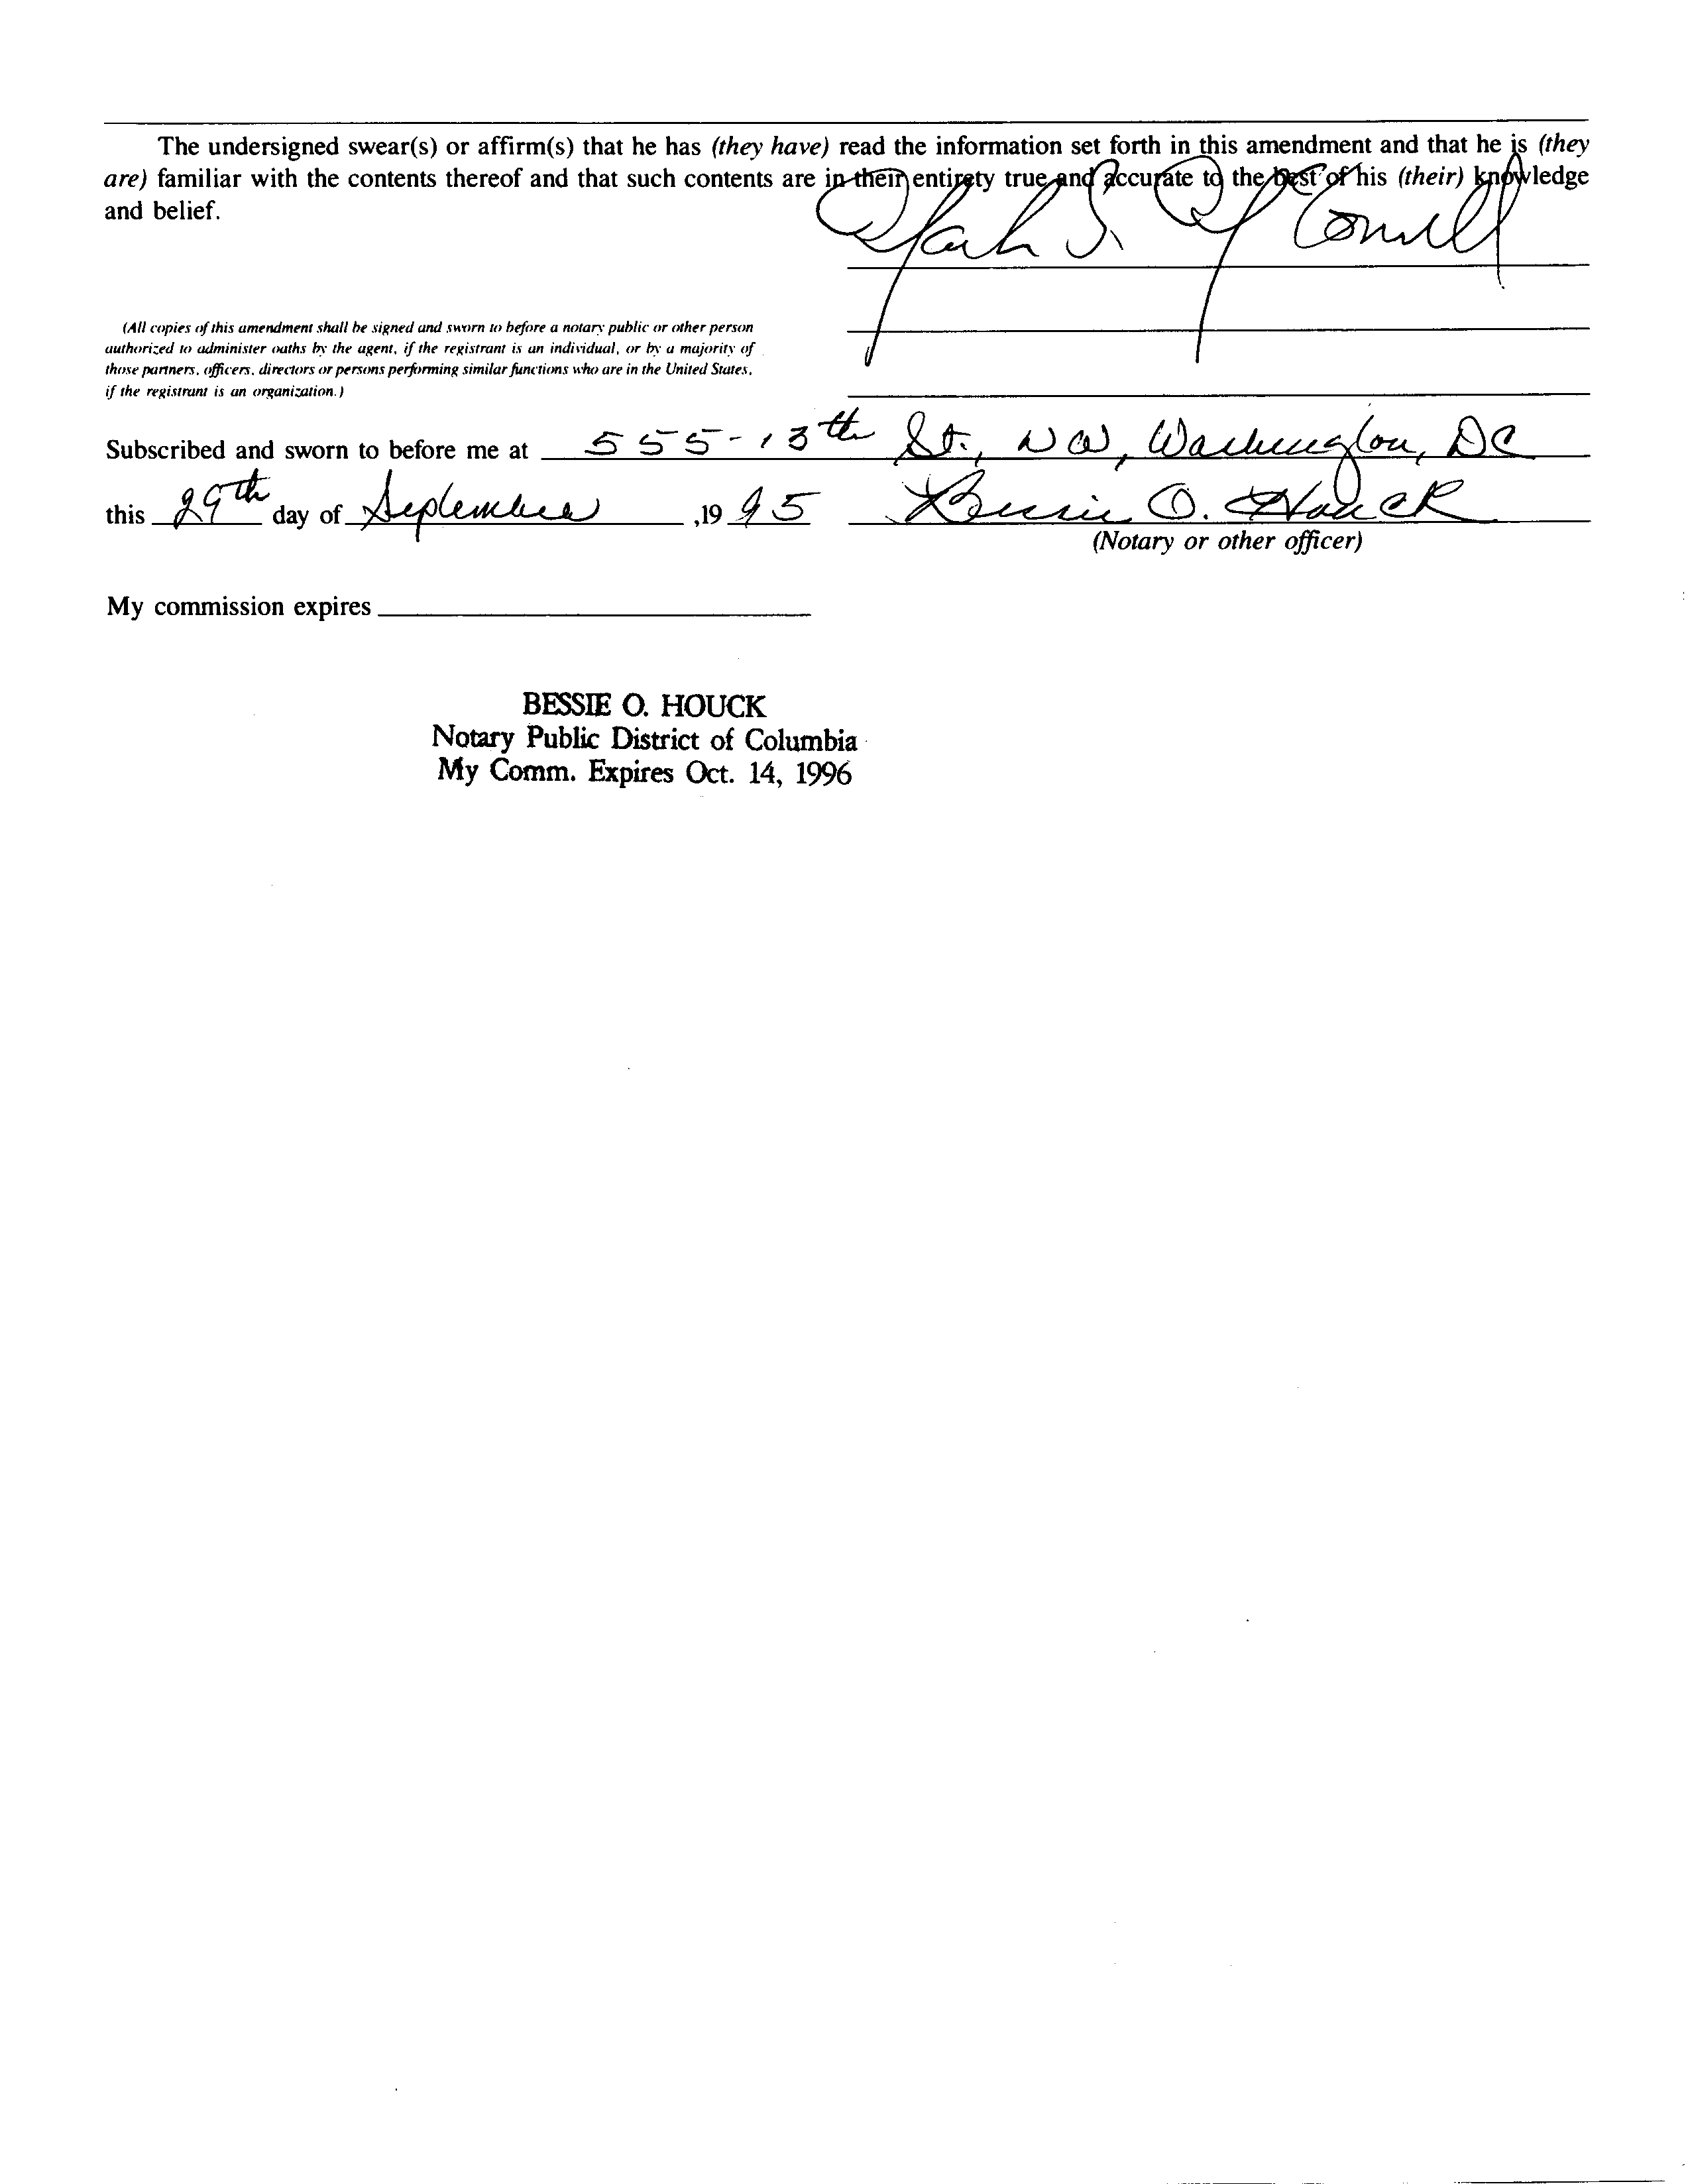 The undersigned swear(s) or affirm(s) that he has (they have) read the information set forth in this amendment and that he is (they
are) familiar with the contents thereof and that such contents are in their entirety true and accurate to the best of his (their) knowledge
and belief.
(All copies of this amendment shall be signed and sworn to before a notary public or other person
authorized to administer oaths by the agent, if the registrant is an individual, or by a majority of
those partners, officers, directors or persons performing similar functions who are in the United States,
if the registrant is an organization.)
Subscribed and sworn to before me at 555-13th St., NW, Washington, DC
this 29th day of September ,19 95 Bessie O. Houck
(Notary or other officer)
My commission expires
BESSIE O. HOUCK
Notary Public District of Columbia
My Comm. Expires Oct. 14, 1996